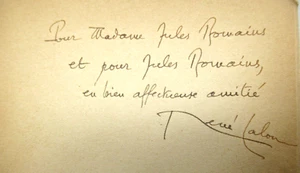 Pour Madame Jules Romains
et pour Jules Romains,
en bien affectueuse amitié
René Lalou